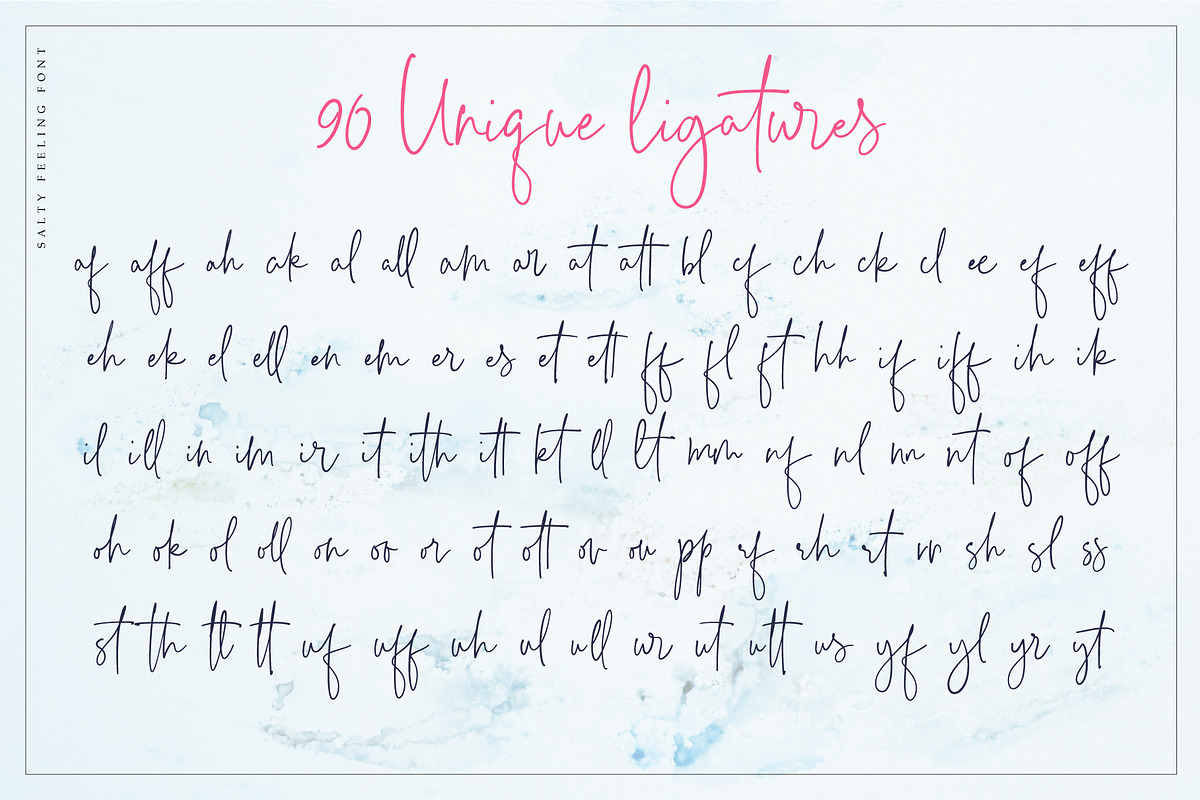 SALTY FEELING FONT
90 Unique ligatures
af aff ah ak al all am ar at att bl cf ch ck cl ee ef eff
eh ek el ell en em er es et ett ff fl ft hh if iff ih ik
il ill in im ir it ith itt kt ll lt mm nf nl nn nt of off
oh ok ol oll on oo or ot ott ov ou pp rf rh rt rr sh sl ss
st th tl tt uf uff uh ul ull ur ut utt us yf yl yr yt